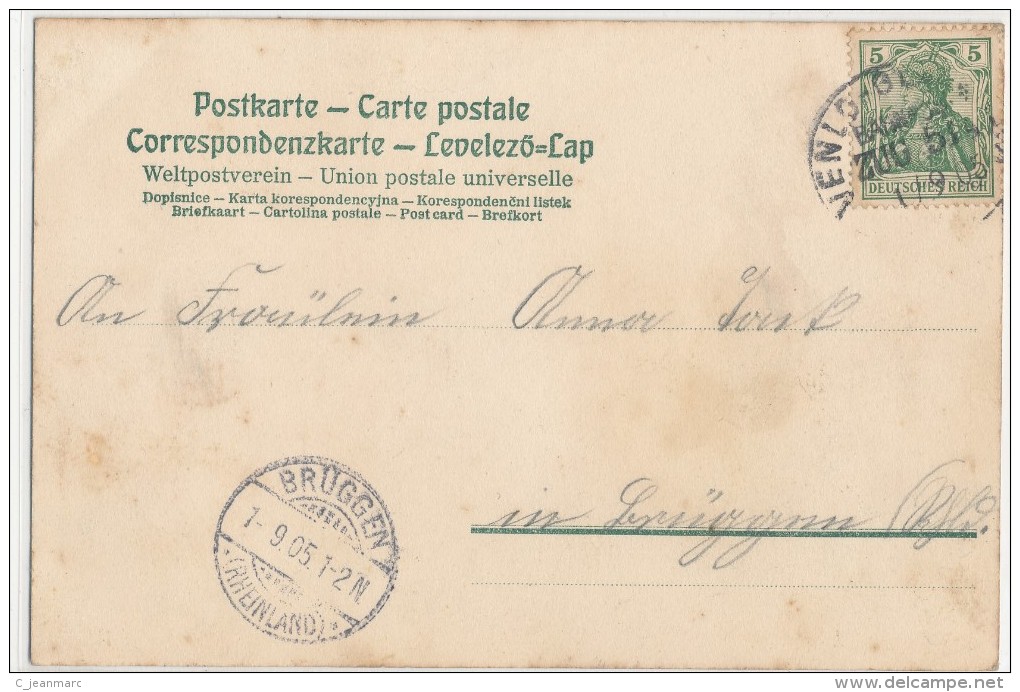 Postkarte – Carte postale
Correspondenzkarte – Levelező=Lap
Weltpostverein – Union postale universelle
Dopisnice – Karta korespondencyjna – Korespondenční listek
Briefkaart – Cartolina postale – Post card – Brefkort
5 5
DEUTSCHES REICH
VENLO
ZUG 51
1/9 05
An Fräulein Anna
in Brüggen
BRÜGGEN
1- 9.05. 1-2 N.
*(RHEINLAND)*
C_jeanmarc
delcampe.net